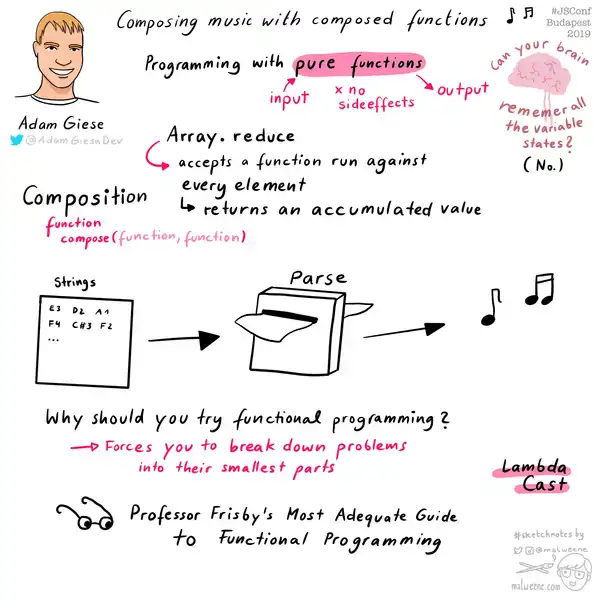 Composing music with composed functions
#JSConf
Budapest
2019
Programming with pure functions
input
x no
sideeffects
output
Can your brain
rememer all
the variable
states?
(No.)
Adam Giese
@AdamGieseDev
Array.reduce
accepts a function run against
every element
returns an accumulated value
Composition
function
compose(function, function)
Strings
E3 D2 A1
F4 C#3 F2
...
Parse
Why should you try functional programming?
Forces you to break down problems
into their smallest parts
Lambda
Cast
Professor Frisby's Most Adequate Guide
to Functional Programming
#sketchnotes by
@malweene
malweene.com